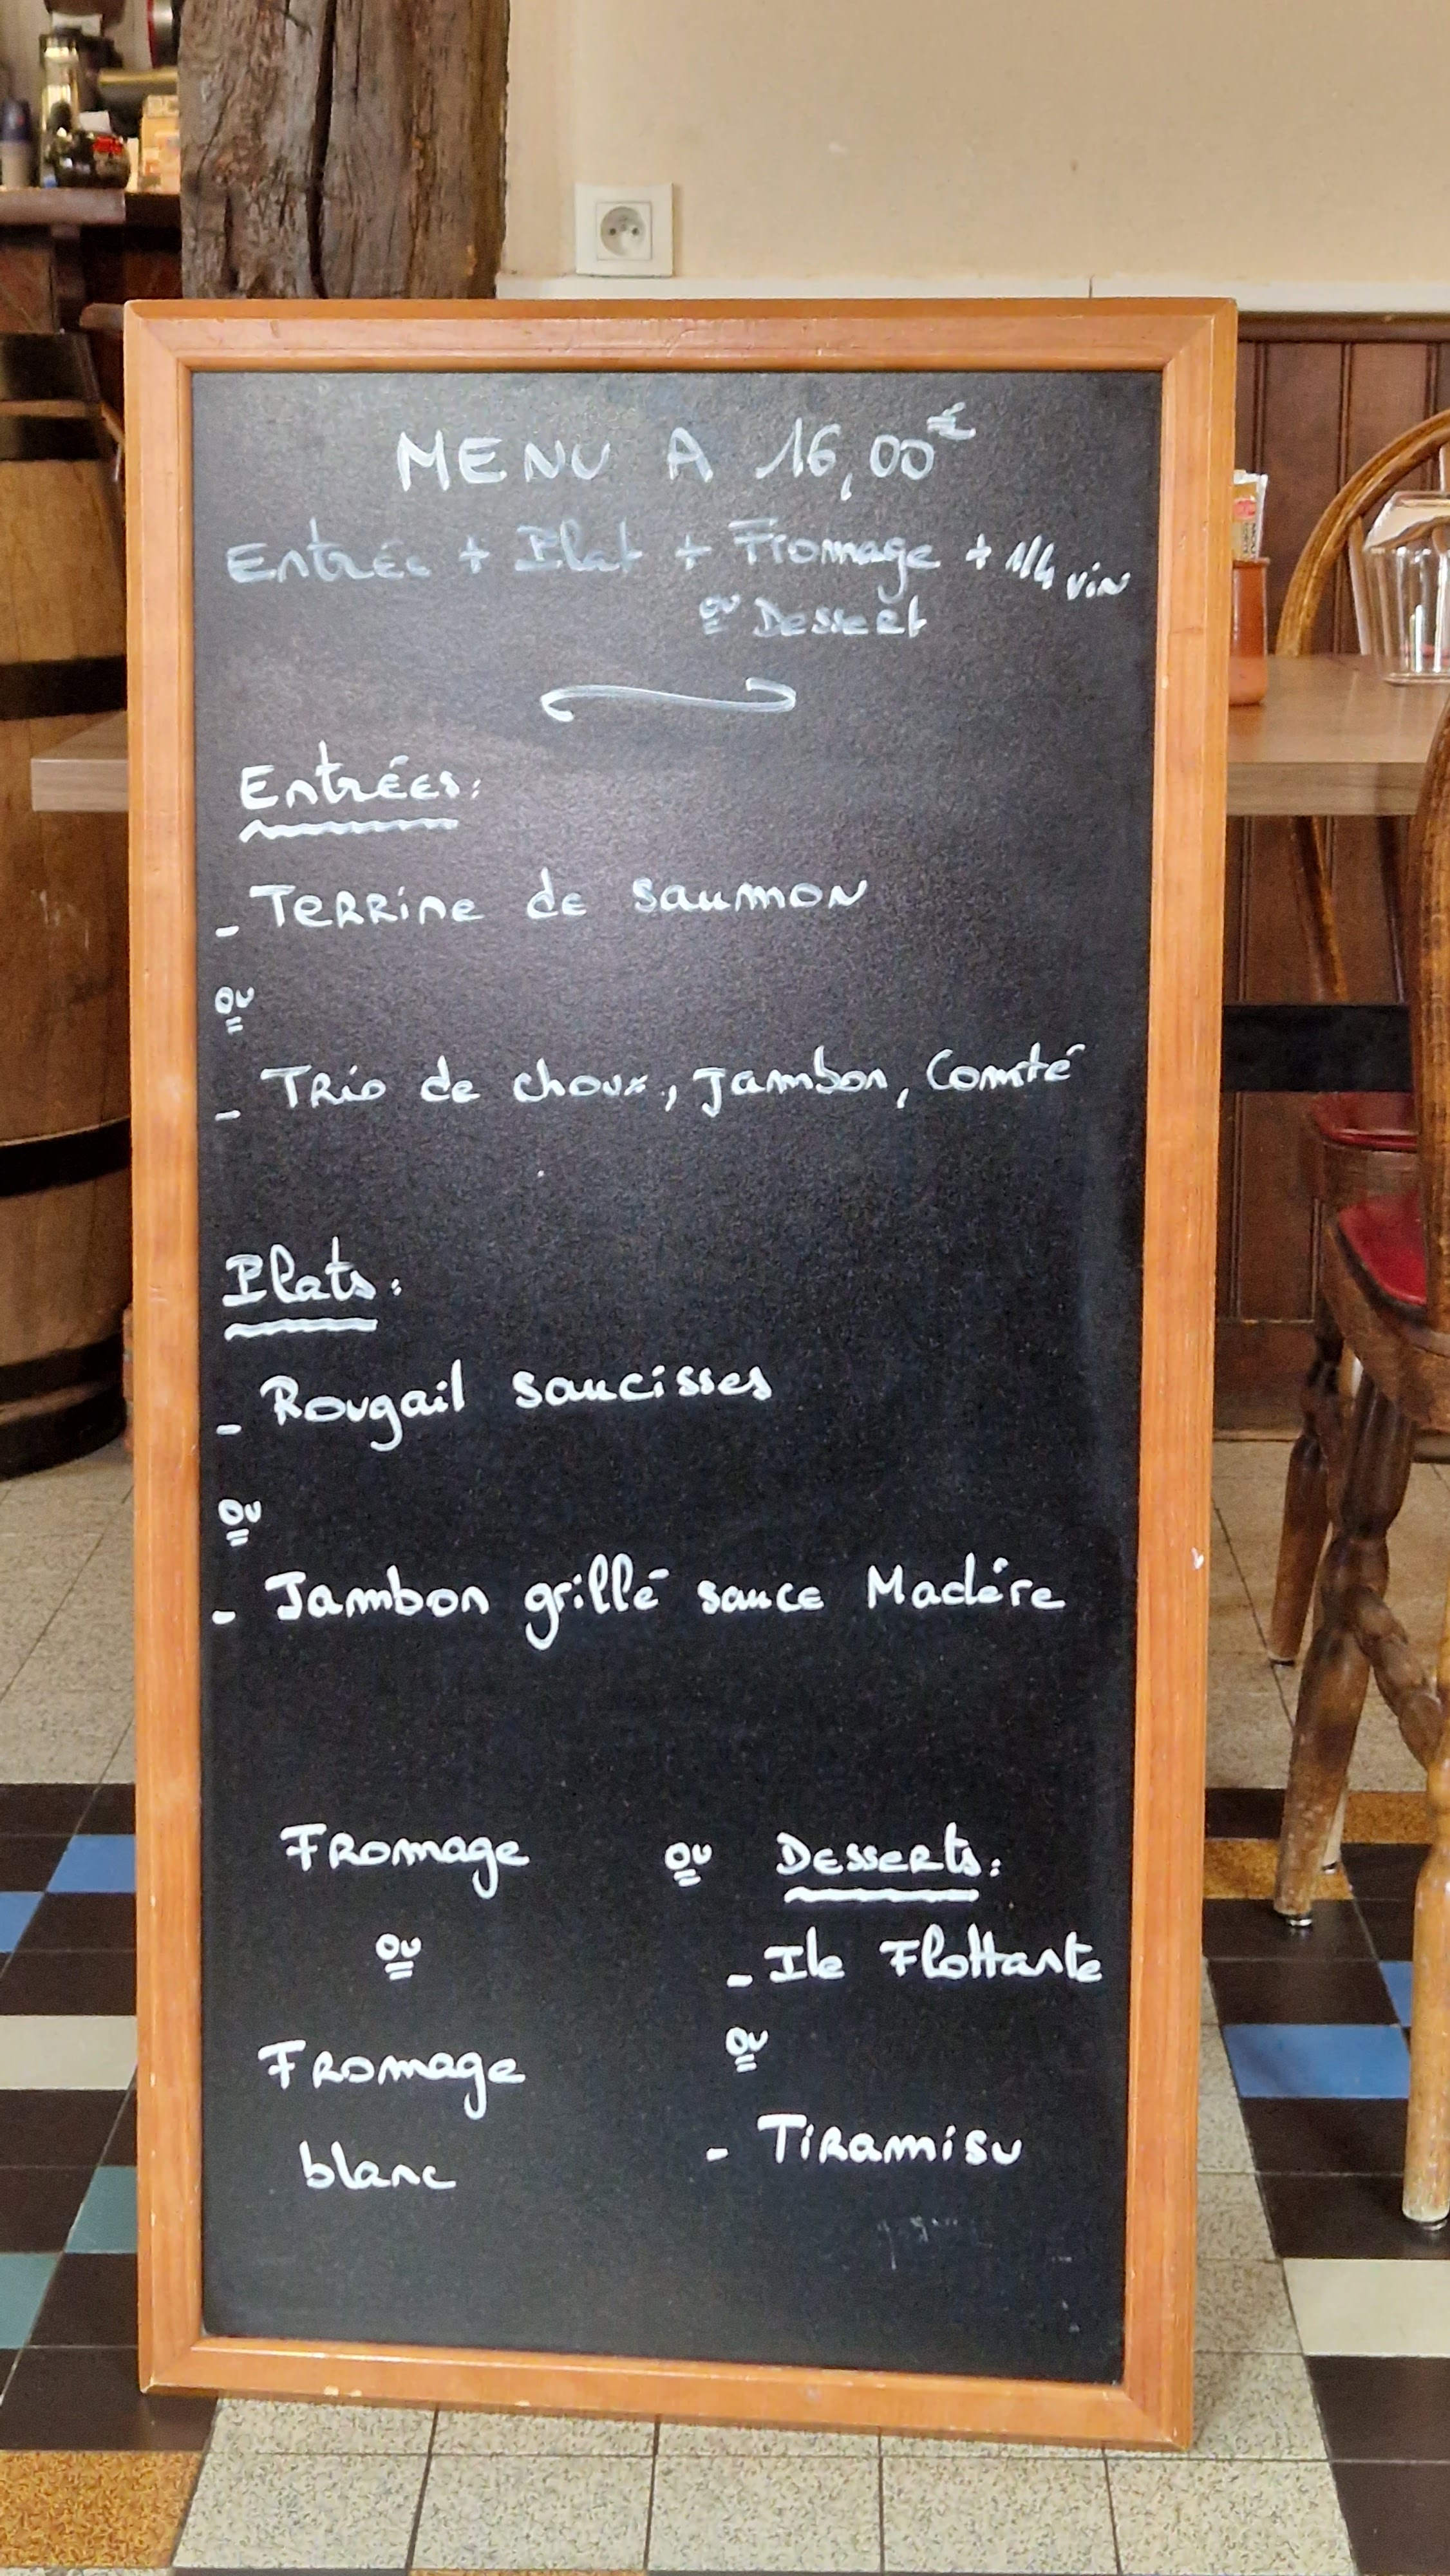 MENU A 16,00€
Entrée + Plat + Fromage + 1/4 vin
ou Dessert
Entrées:
- Terrine de saumon
ou
- Trio de choux, Jambon, Comté
Plats:
- Rougail saucisses
ou
- Jambon grillé sauce Madére
Fromage ou Desserts:
ou - Ile Flottante
ou
Fromage
blanc - Tiramisu